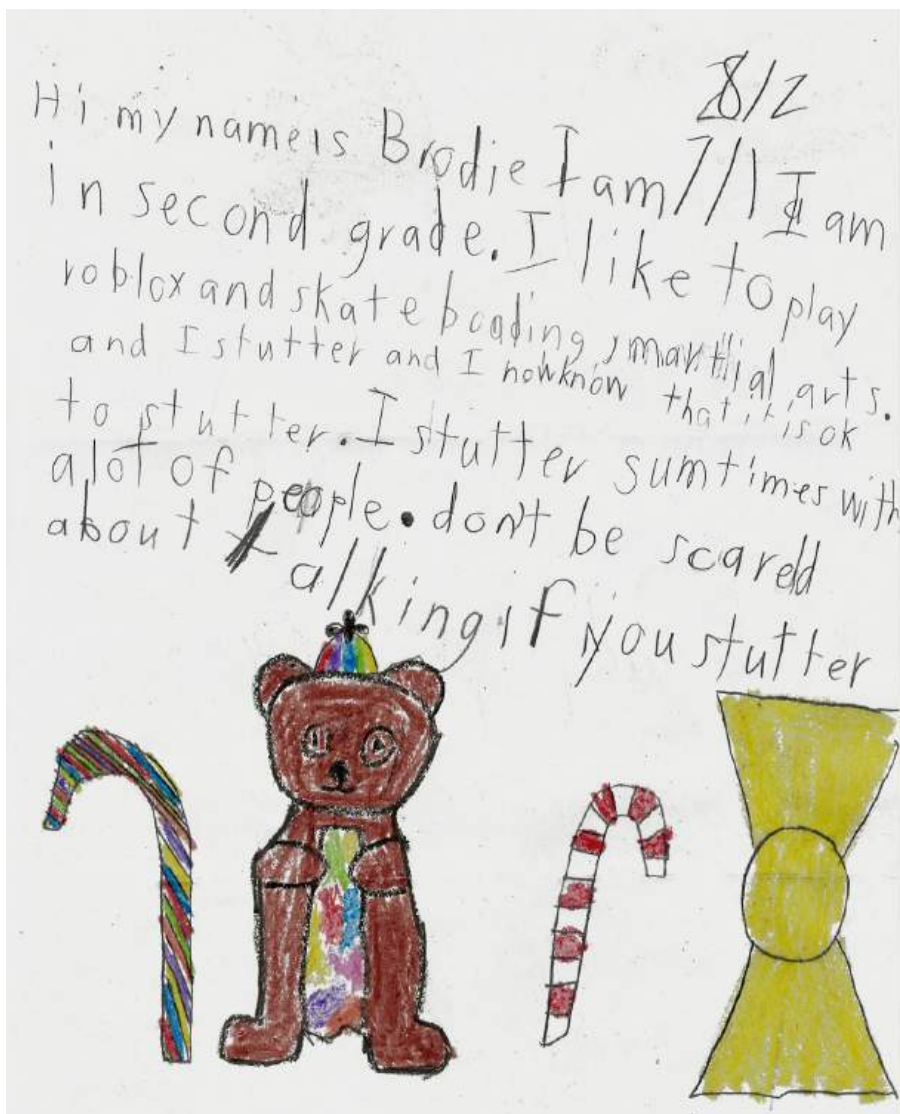 28/2
Hi my name is Brodie I am 7/1 I am
in second grade. I like to play
roblox and skate boading, martial arts.
and I stutter and I now know that it is ok
to stutter. I stutter sumtimes with
alot of people. don't be scared
about talking if you stutter